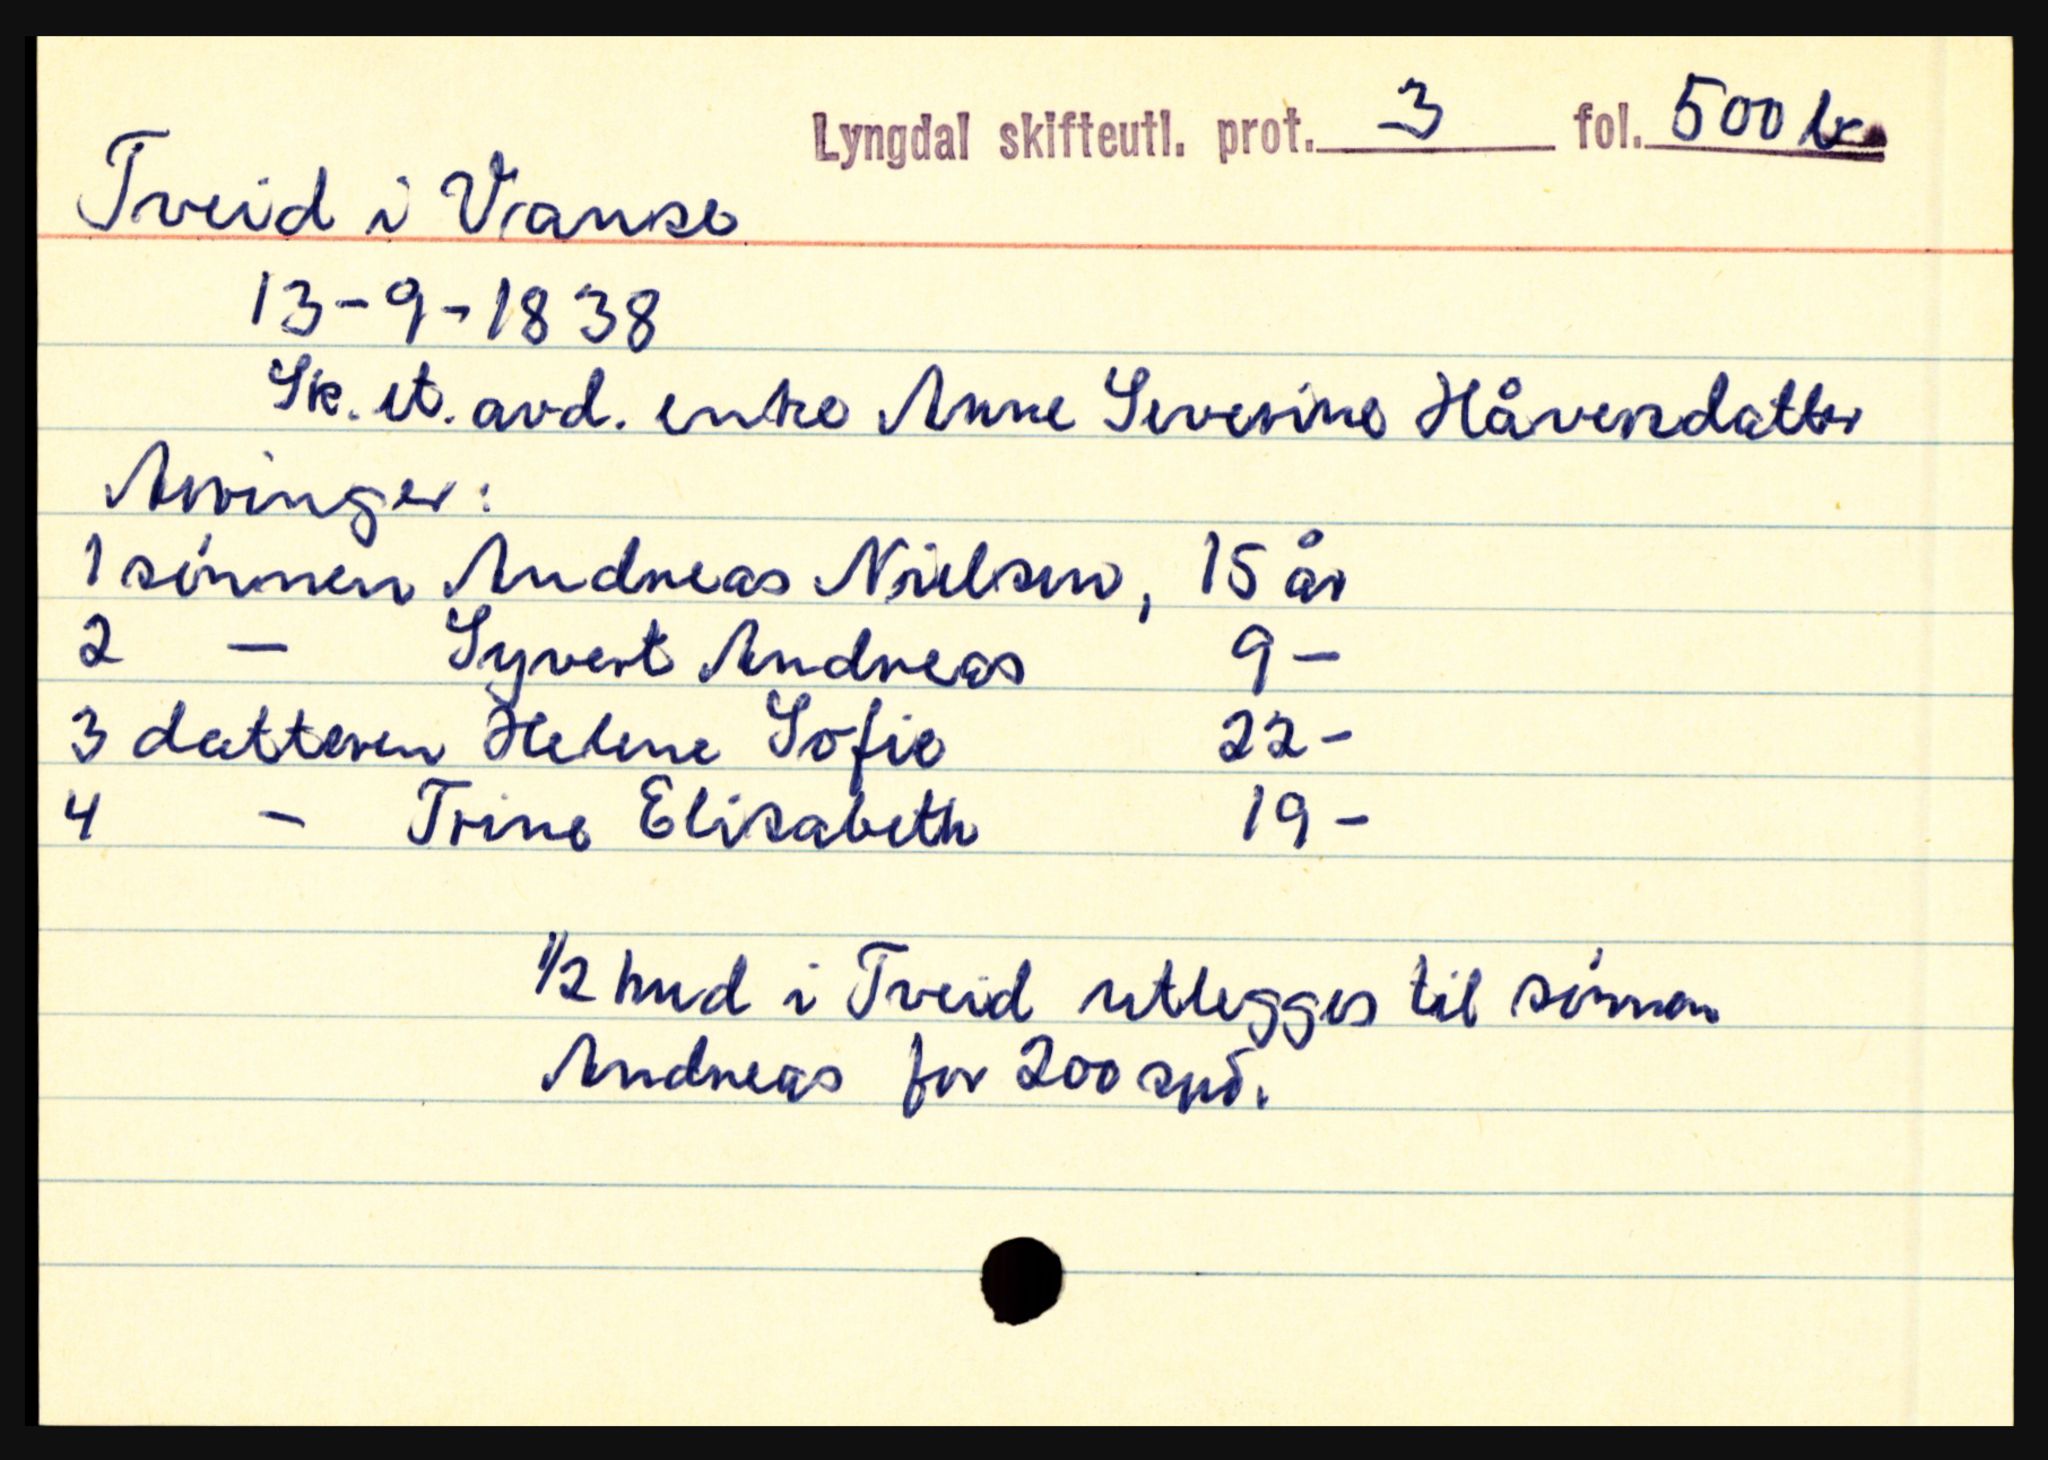 Lyngdal skifteutl. prot. 3 fol. 500 b
Tveid i Vanse
13-9-1838
Sk. et. avd. enke Anne Severine Håversdatter
Arvinger:
1 sønnen Andreas Nielsen, 15 år
2 — Syvert Andreas 9 —
3 datteren Helene Sofie 22 -
4 - Trine Elisabeth 19 -
1/2 hud i Tveid utlegges til sønnen
Andreas for 200 spd.